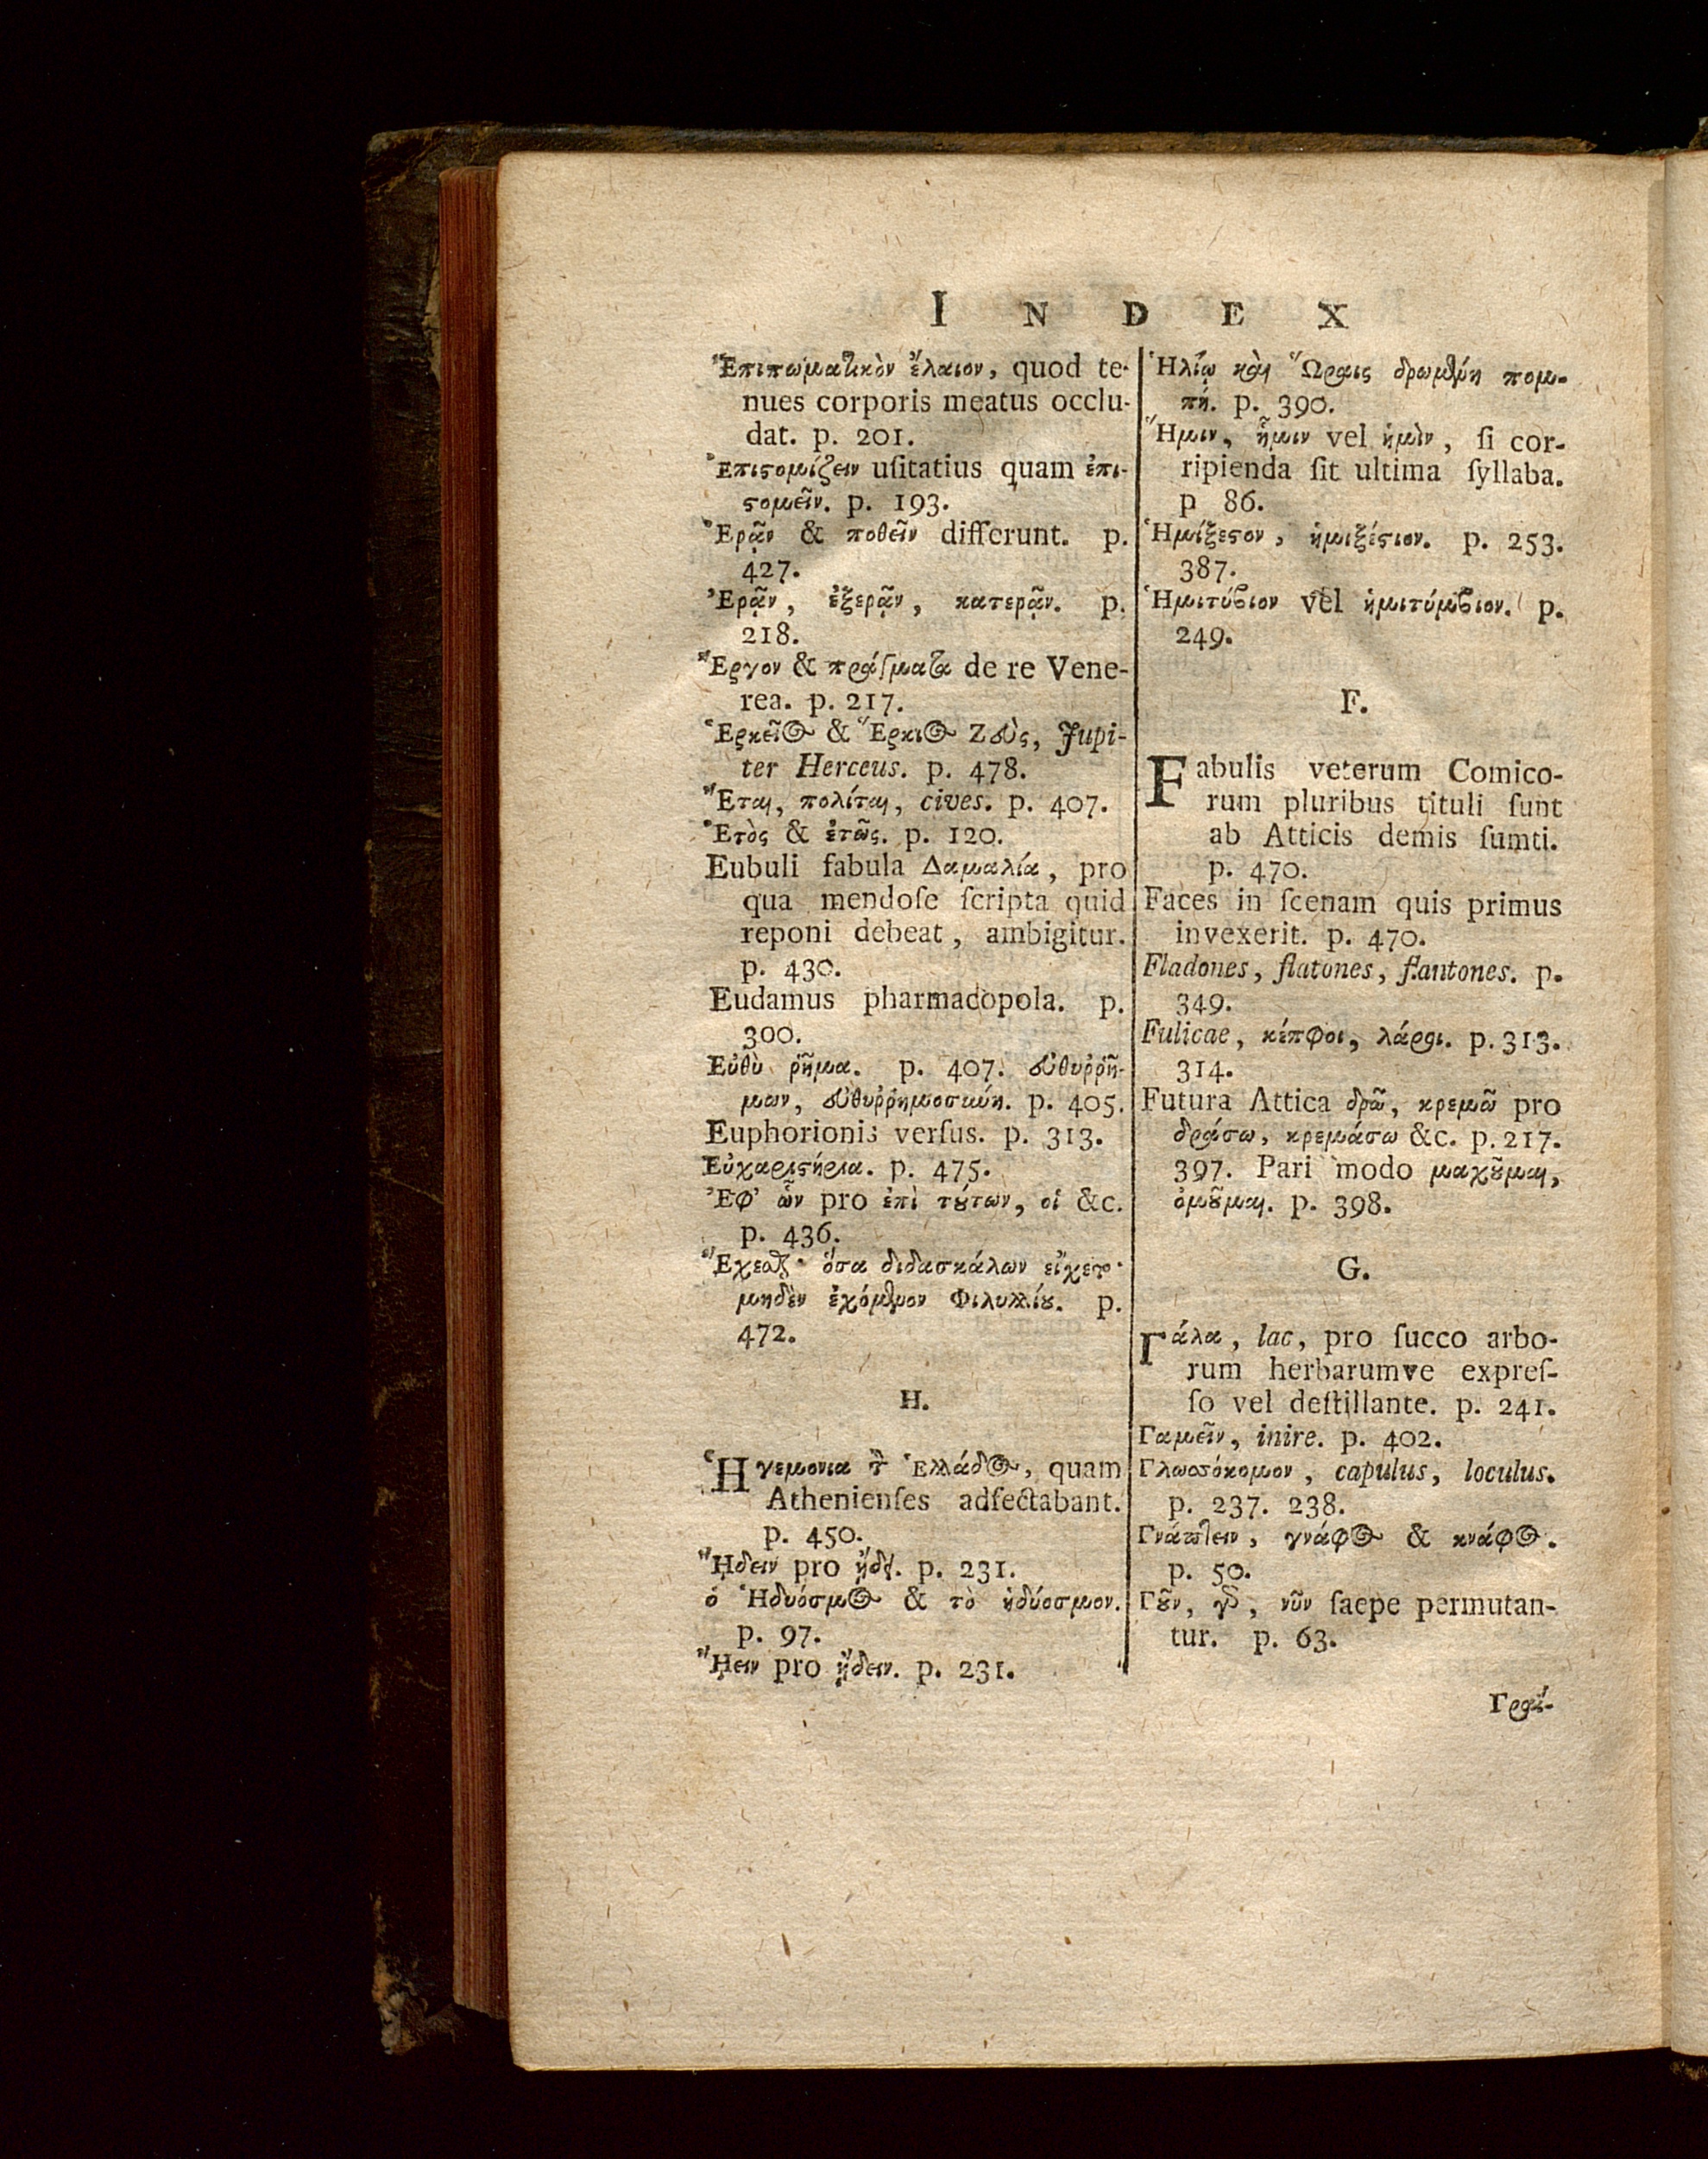 INDEX
Ἐπιπωματικὸν ἔλαιον, quod te-
nues corporis meatus occlu-
dat. p. 201.
Ἐπιστομίζειν uſitatius quam ἐπι-
στομεῖν. p. 193.
Ἐρᾷν & ποθεῖν differunt. p.
427.
Ἐρᾷν, ἐξερᾷν, κατερᾷν. p.
218.
Ἔργον & πράγματα de re Vene-
rea. p. 217.
Ἑρκεῖος & Ἕρκιος Ζεὺς, Jupi-
ter Herceus. p. 478.
Ἔται, πολίται, cives. p. 407.
Ἐτὸς & ἐτῶς. p. 120.
Eubuli fabula Δαμαλία, pro
qua mendoſe ſcripta quid
reponi debeat, ambigitur.
p. 430.
Eudamus pharmacopola. p.
300.
Εὐθὺ ῥῆμα. p. 407. εὐθυῤῥή-
μων, εὐθυῤῥημοσύνη. p. 405.
Euphorionis verſus. p. 313.
Εὐχαριστήρια. p. 475.
Ἐφ' ὧν pro ἐπὶ τούτων, οἱ &c.
p. 436.
ὅσα διδασκάλων εἴχετο·
μηδὲν ἐχόμενον Φιλυλλίου. p.
472.
H.
Ἡγεμονια τ῀ Ἑλλάδος, quam
Athenienſes adfectabant.
p. 450.
ᾜδειν pro ᾔδη. p. 231.
ὁ Ἡδυόσμος & τὸ ἡδύοσμον.
p. 97.
ᾜειν pro ᾔδειν. p. 231.
Ἡλίῳ καὶ Ὥραις δρωμένη πομ-
πή. p. 390.
Ἥμιν, ἧμιν vel ἡμὶν, ſi cor-
ripienda ſit ultima ſyllaba.
p 86.
Ἡμίξεστον, ἡμιξέστιον. p. 253.
387.
Ἡμιτύβιον vel ἡμιτύμβιον. p.
249.
F.
Fabulis veterum Comico-
rum pluribus tituli ſunt
ab Atticis demis ſumti.
p. 470.
Faces in ſcenam quis primus
invexerit. p. 470.
Fladones, flatones, flantones. p.
349.
Fulicae, κέπφοι, λάροι. p. 313.
314.
Futura Attica δρῶ, κρεμῶ pro
δράσω, κρεμάσω &c. p. 217.
397. Pari modo μαχοῦμαι,
ὀμοῦμαι. p. 398.
G.
Γάλα, lac, pro ſucco arbo-
rum herbarumve expreſ-
ſo vel deſtillante. p. 241.
Γαμεῖν, inire. p. 402.
Γλωσσόκομον, capulus, loculus.
p. 237. 238.
Γνάπτειν, γνάφος & κνάφος.
p. 50.
Γοῦν, γὰρ, νῦν ſaepe permutan-
tur. p. 63.
Γρά-